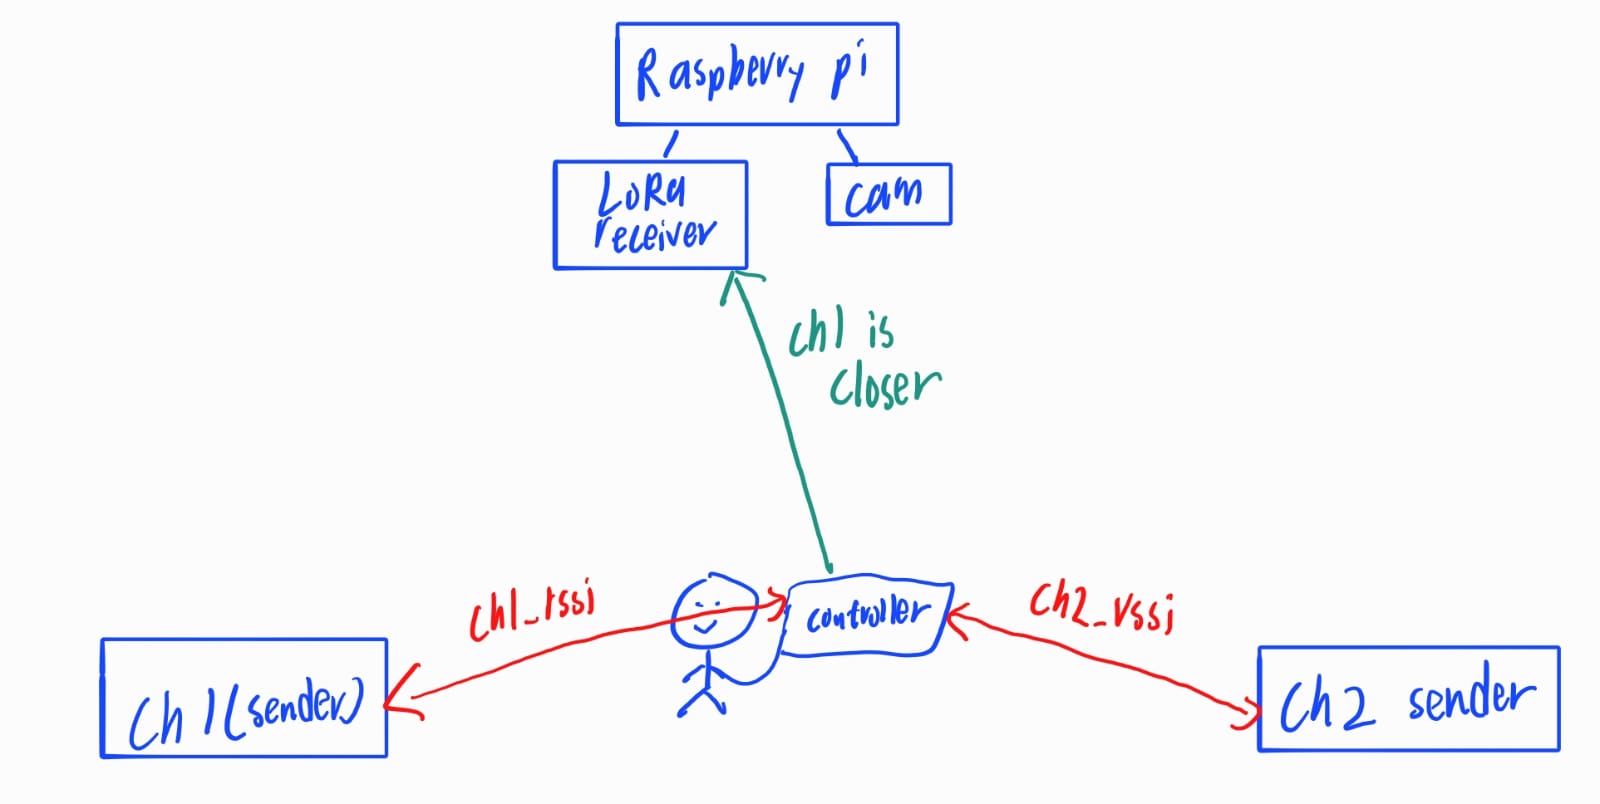 Raspberry pi
LoRa
receiver
cam
ch1 is
closer
ch1_rssi
controller
ch2_rssi
ch1(sender)
ch2 sender